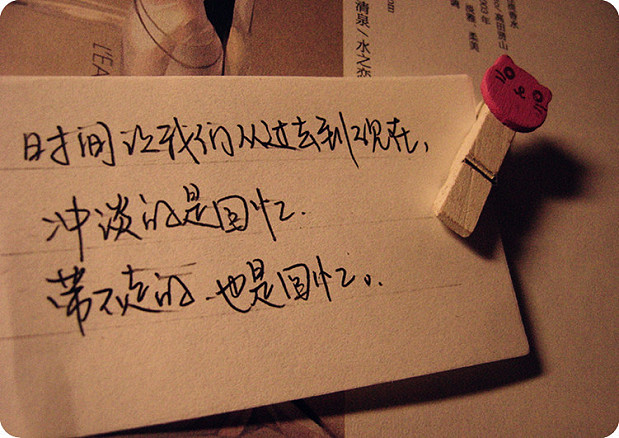 时间让我们从过去到现在,
冲谈的是回忆.
带不走的.也是回忆。
清泉/水之恋
L'EA